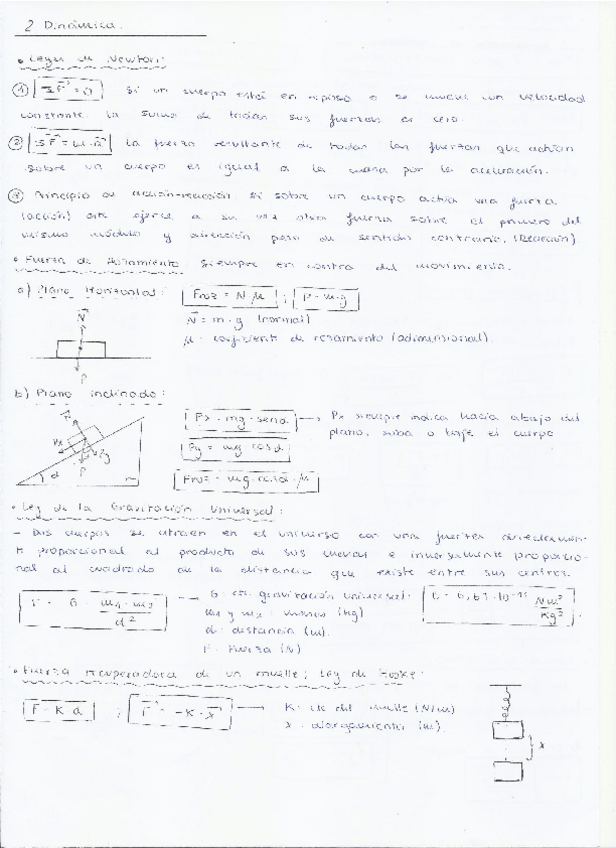 2 Dinámica.
• Leyes de Newton:
① ΣF = 0 Si un cuerpo está en reposo o se mueve con velocidad
constante la suma de todas sus fuerzas es cero.
② ΣF = m·a La fuerza resultante de todas las fuerzas que actúan
sobre un cuerpo es igual a la masa por la aceleración.
③ Principio de acción-reacción si sobre un cuerpo actúa una fuerza
(acción) este ejerce a su vez otra fuerza sobre el primero del
mismo módulo y dirección pero de sentido contrario. (Reacción)
• Fuerza de Rozamiento siempre en contra del movimiento.
a) Plano Horizontal: Froz = N·μ ; P = m·g
N = m·g (normal)
μ = coeficiente de rozamiento (adimensional).
N
P
b) Plano inclinado:
Px = mg·senα → Px siempre indica hacia abajo del
plano, suba o baje el cuerpo
Py = mg cosα
Froz = mg·cosα·μ
N
Px
P
Py
α
• Ley de la Gravitación Universal:
- Dos cuerpos se atraen en el universo con una fuerza directamen-
te proporcional al producto de sus masas e inversamente proporcio-
nal al cuadrado de la distancia que existe entre sus centros.
F = G · m1·m2 / d² → G: cte. gravitación universal: G = 6,67·10⁻¹¹ Nm²/Kg²
m1 y m2: masas (kg)
d: distancia (m).
F: Fuerza (N)
• Fuerza recuperadora de un muelle; Ley de Hooke:
F = K·a ; F = -K·x → K: cte del muelle (N/m)
x: alargamiento (m).
x